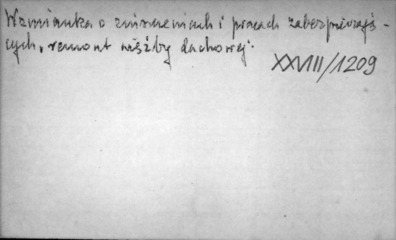 Wzmianka o zniszczeniach i pracach zabezpieczają-
cych, remont więźby dachowej.
XXVIII/1209